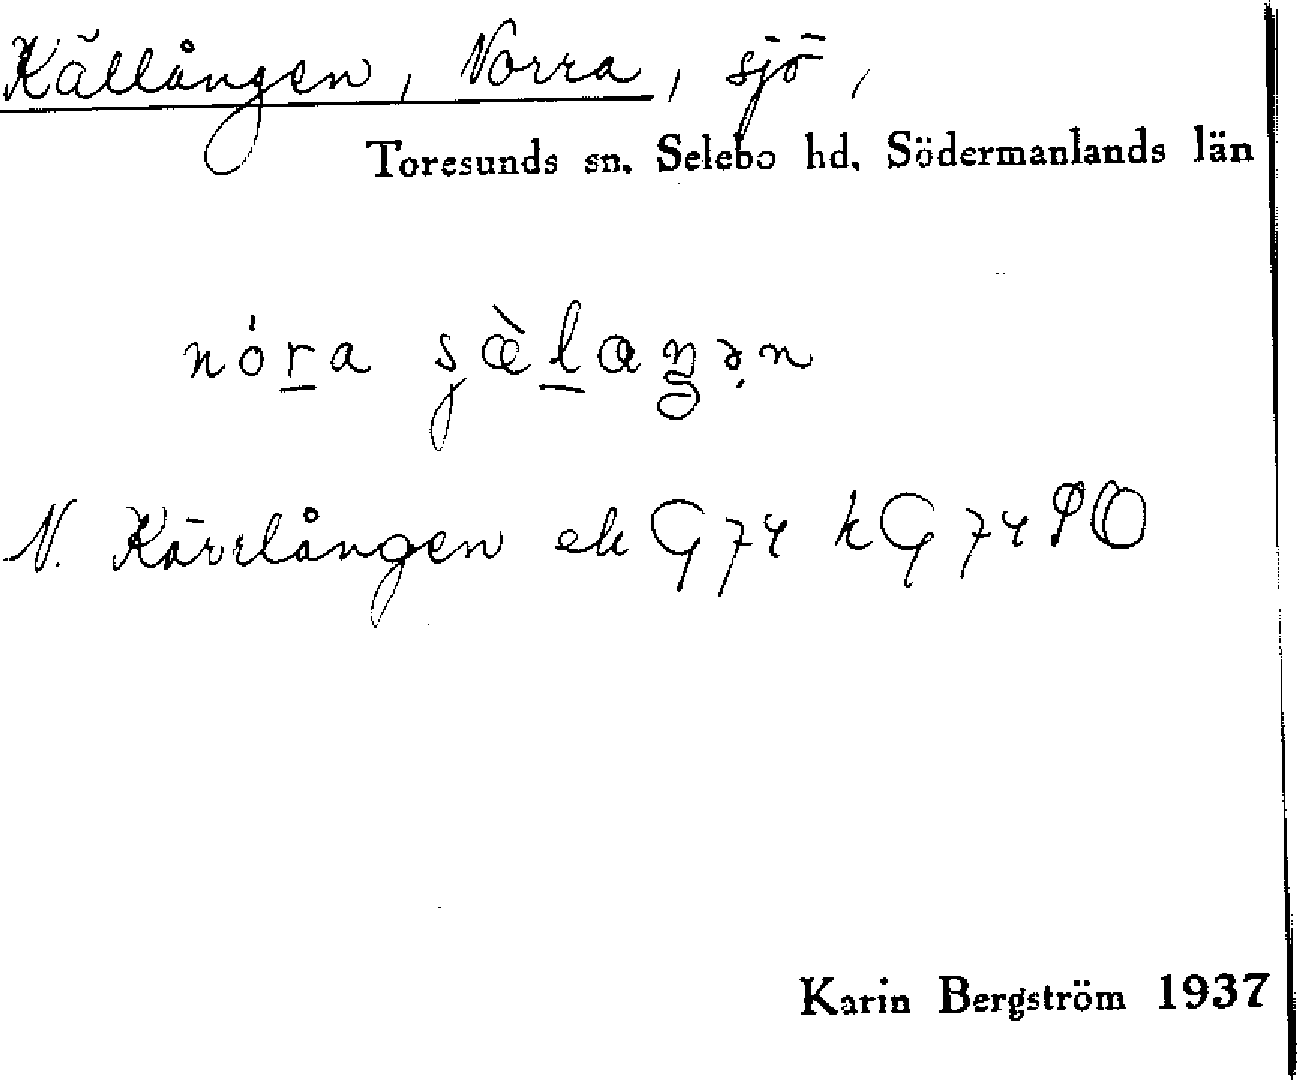 Källången, Norra, sjö,
Toresunds sn. Selebo hd. Södermanlands län
nóra
N. Kärrlången ek G74 kG74 SO
Karin Bergström 1937